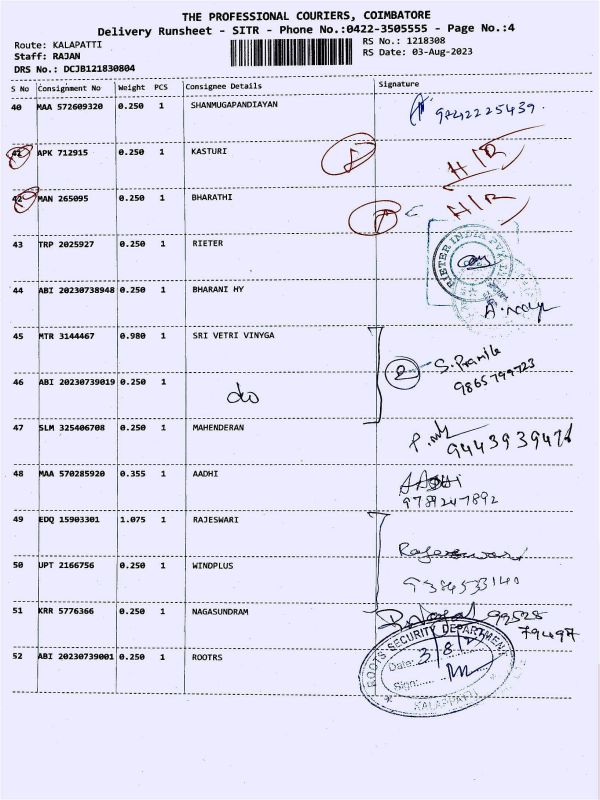 THE PROFESSIONAL COURIERS, COIMBATORE
Delivery Runsheet - SITR - Phone No.:0422-3505555 - Page No.:4
Route: KALAPATTI
Staff: RAJAN
DRS No.: DCJB121830804
RS No.: 1218308
RS Date: 03-Aug-2023
S No Consignment No Weight PCS Consignee Details Signature
40 MAA 572609320 0.250 1 SHANMUGAPANDIAYAN 9842225439.
41 APK 712915 0.250 1 KASTURI H/R
42 MAN 265095 0.250 1 BHARATHI H/R
43 TRP 2025927 0.250 1 RIETER
RIETER INDIA PVT. LTD
44 ABI 20230738948 0.250 1 BHARANI HY
45 MTR 3144467 0.980 1 SRI VETRI VINYGA
2 - S. Pramila
9865799723
46 ABI 20230739019 0.250 1 do
47 SLM 325406708 0.250 1 MAHENDERAN
9443939471
48 MAA 570285920 0.355 1 AADHI AADHI
9789247892
49 EDQ 15903301 1.075 1 RAJESWARI
50 UPT 2166756 0.250 1 WINDPLUS Rajeswari
9384533140
51 KRR 5776366 0.250 1 NAGASUNDRAM 99528
79497
52 ABI 20230739001 0.250 1 ROOTRS
ROOTS SECURITY DEPARTMENT
Date: 3/8/
Sign:
KALAPPATTI